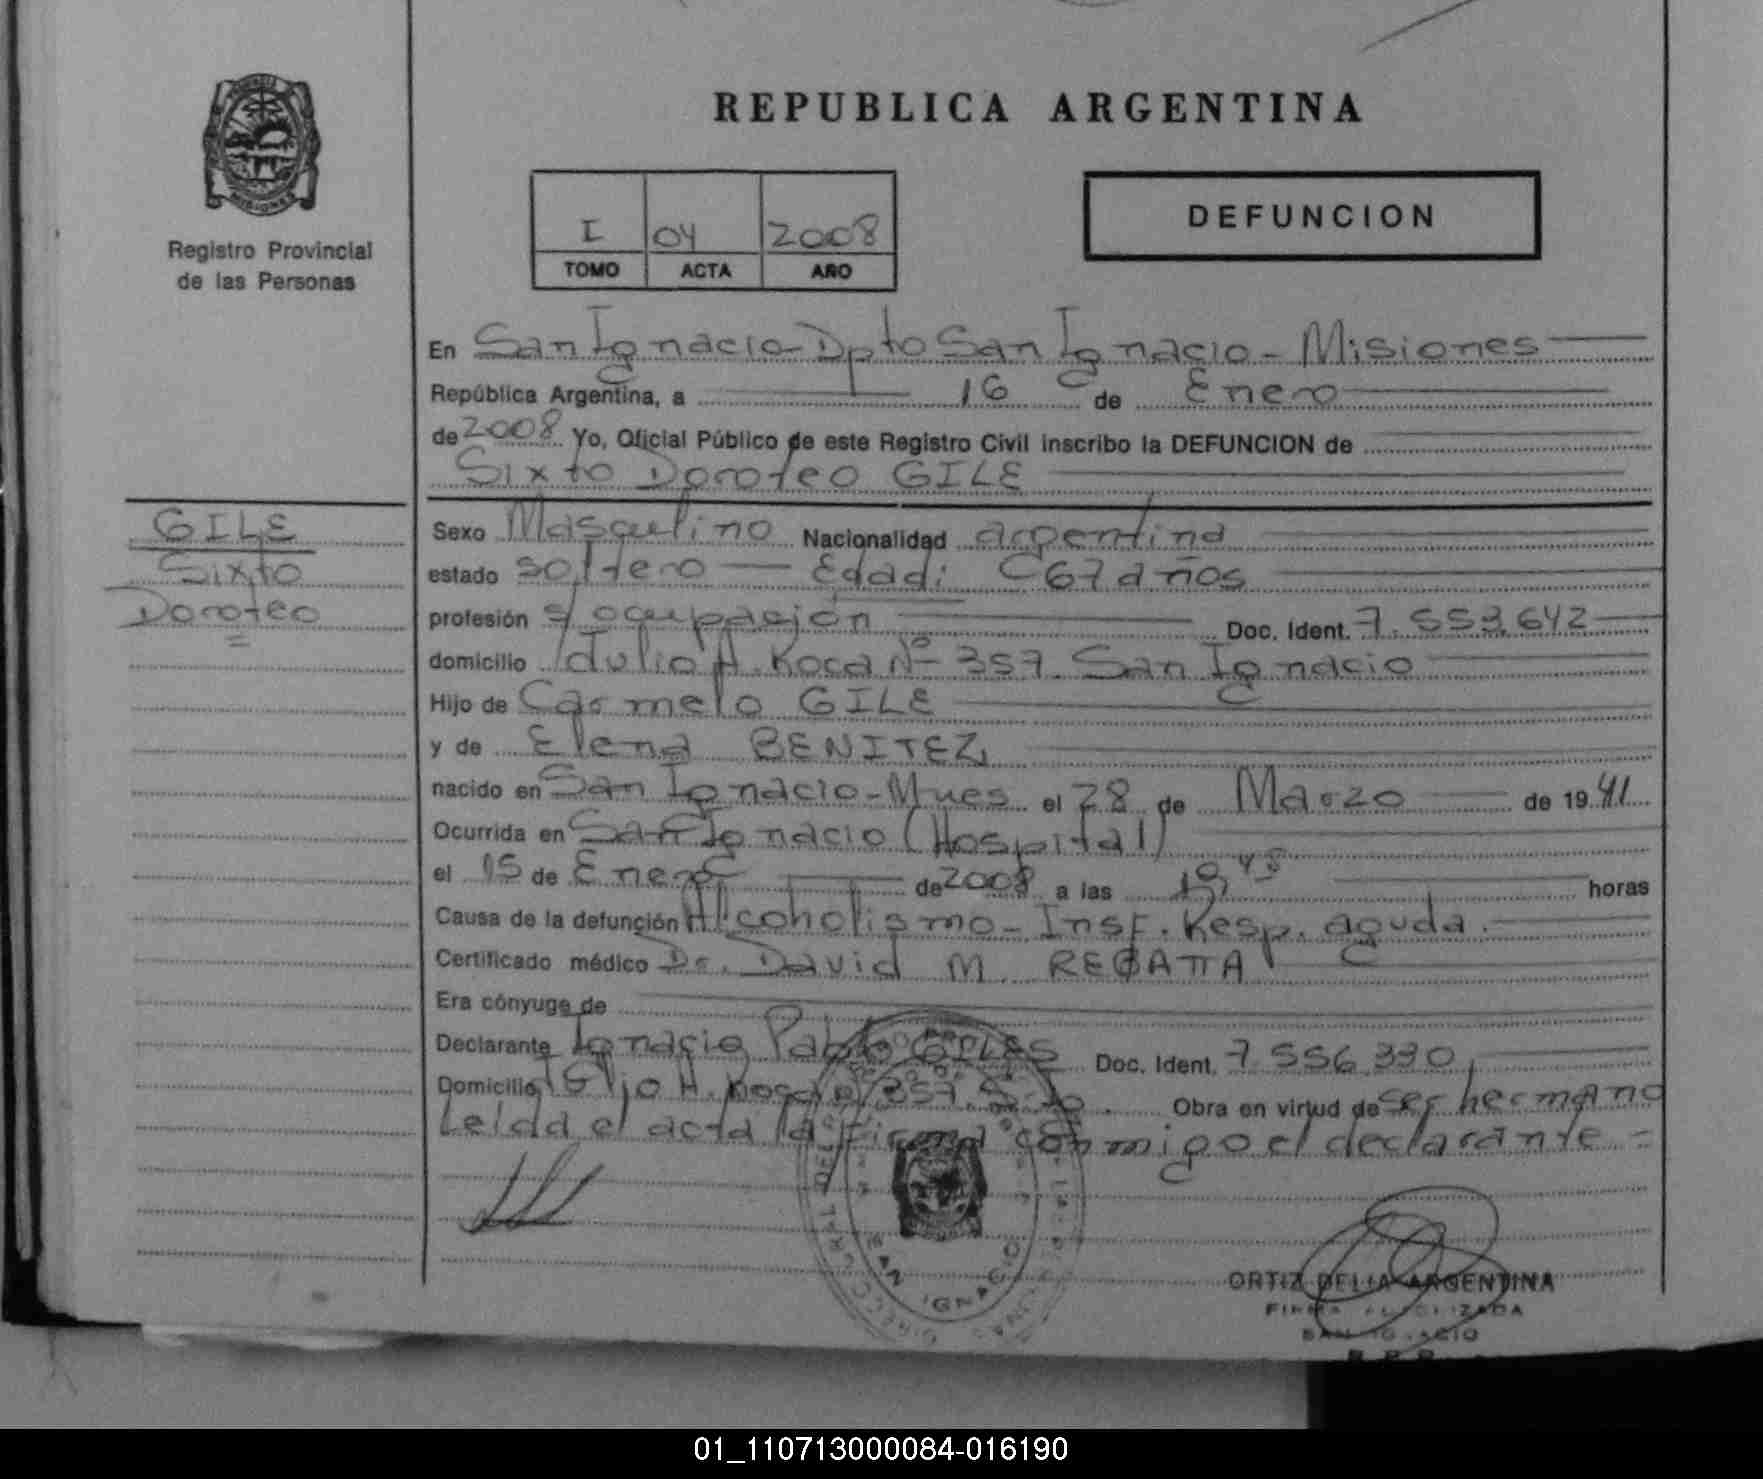 REPUBLICA ARGENTINA
MISIONES
Registro Provincial
de las Personas
I 04 2008
TOMO ACTA AÑO
DEFUNCION
En San Ignacio-Dpto San Ignacio-Misiones
República Argentina, a 16 de Enero
de 2008 Yo, Oficial Público de este Registro Civil inscribo la DEFUNCION de
Sixto Doroteo GILE
GILE
Sixto
Doroteo
Sexo Masculino Nacionalidad argentina
estado soltero Edad: 67 años
profesión s/ ocupación Doc. Ident. 7.553.642
domicilio Julio A. Roca Nº 357. San Ignacio
Hijo de Carmelo GILE
y de Elena BENITEZ
nacido en San Ignacio-Mnes el 28 de Marzo de 1941
Ocurrida en San Ignacio (Hospital)
el 15 de Enero de 2008 a las horas
Causa de la defunción Alcoholismo-Insf. Resp. aguda.
Certificado médico Dr. David M.
Era cónyuge de
Declarante Ignacio Pablo GILES Doc. Ident. 7.556.330
Domicilio Julio A. Roca 357. Obra en virtud de ser hermano
Leida el acta la firma conmigo el declarante
SAN IGNACIO
ORTIZ DELIA ARGENTINA
FIRMA
SAN IGNACIO
01_110713000084-016190